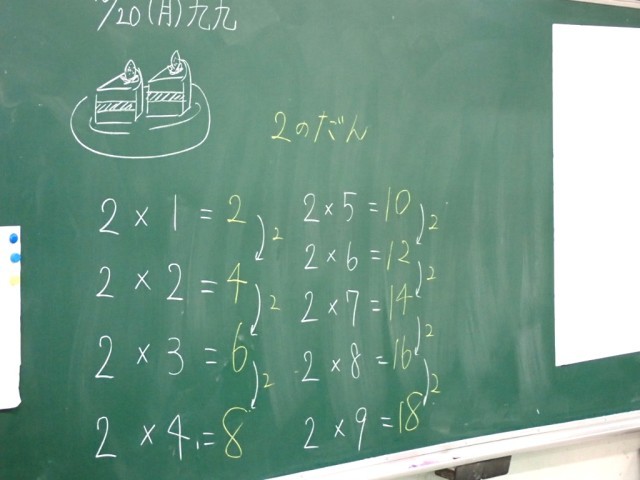 /20(月)九九
2のだん
2×1=2
2
2×2=4
2
2×3=6
2
2×4=8
2×5=10
2
2×6=12
2
2×7=14
2
2×8=16
2
2×9=18